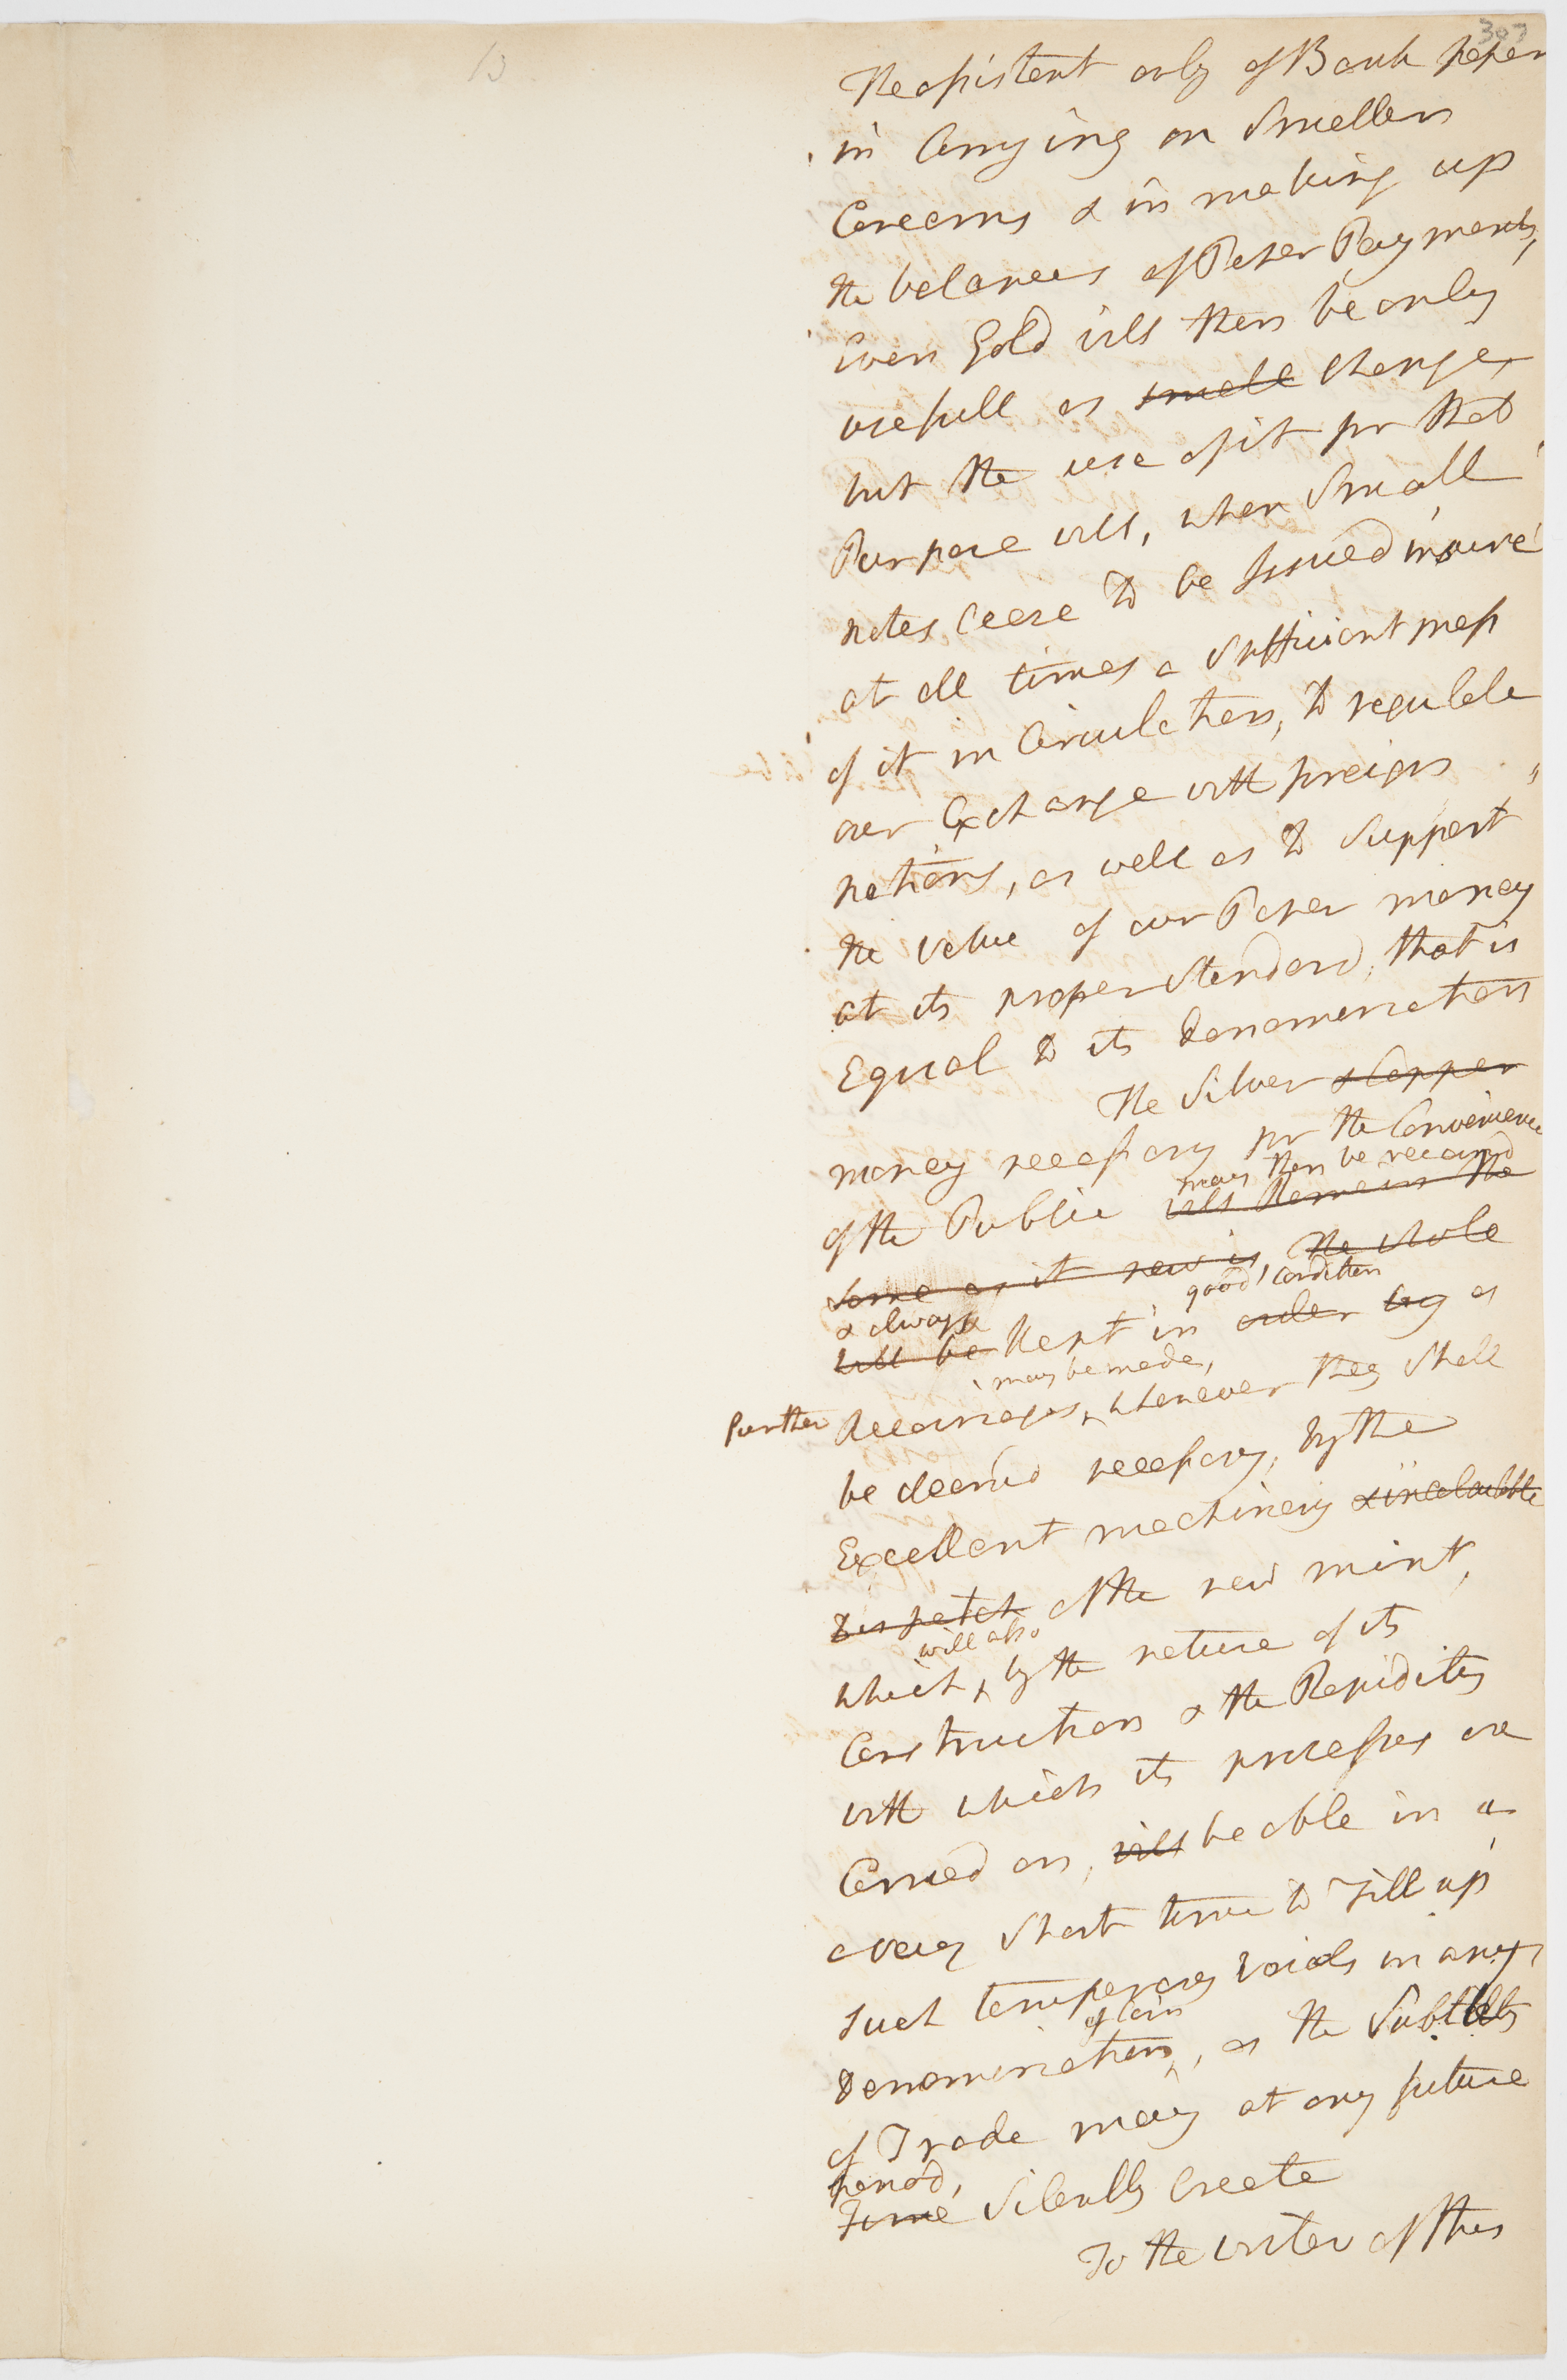 307
13
The assistent only of Bank paper
in Carrying on Smaller
Concerns & in making up
the balances of Paper Payments,
Even Gold will then be only
usefull as small Change,
but the use of it for that
Purpose will, when Small
notes Cease to be Issued insure
at all times a Sufficient mass
of it in Circulation, to regulate
our Exchange with foreign
nations, as well as to Support
the value of our Paper money
at its proper Standard, that is
Equal to its denomination
The Silver & Copper
money necessary for the Convenience
may then be recoined
of the Public will Remain the
Same as it now is, the whole
& always good condition
will be Kept in order by a
may be made,
further Recoinages, whenever they Shall
be deemd necessary, by the
Excellent machinery & incalculable
Dispatch of the new mint,
will also
which, by the nature of its
Construction & the Rapidity
with which its processes are
Carried on, will be able in a
a very Short time to Fill up
Such temporary Voids in any
of Coin
denomination, as the Subtilty
of Trade may at any future
period,
Time Silently Create
To the writer of this